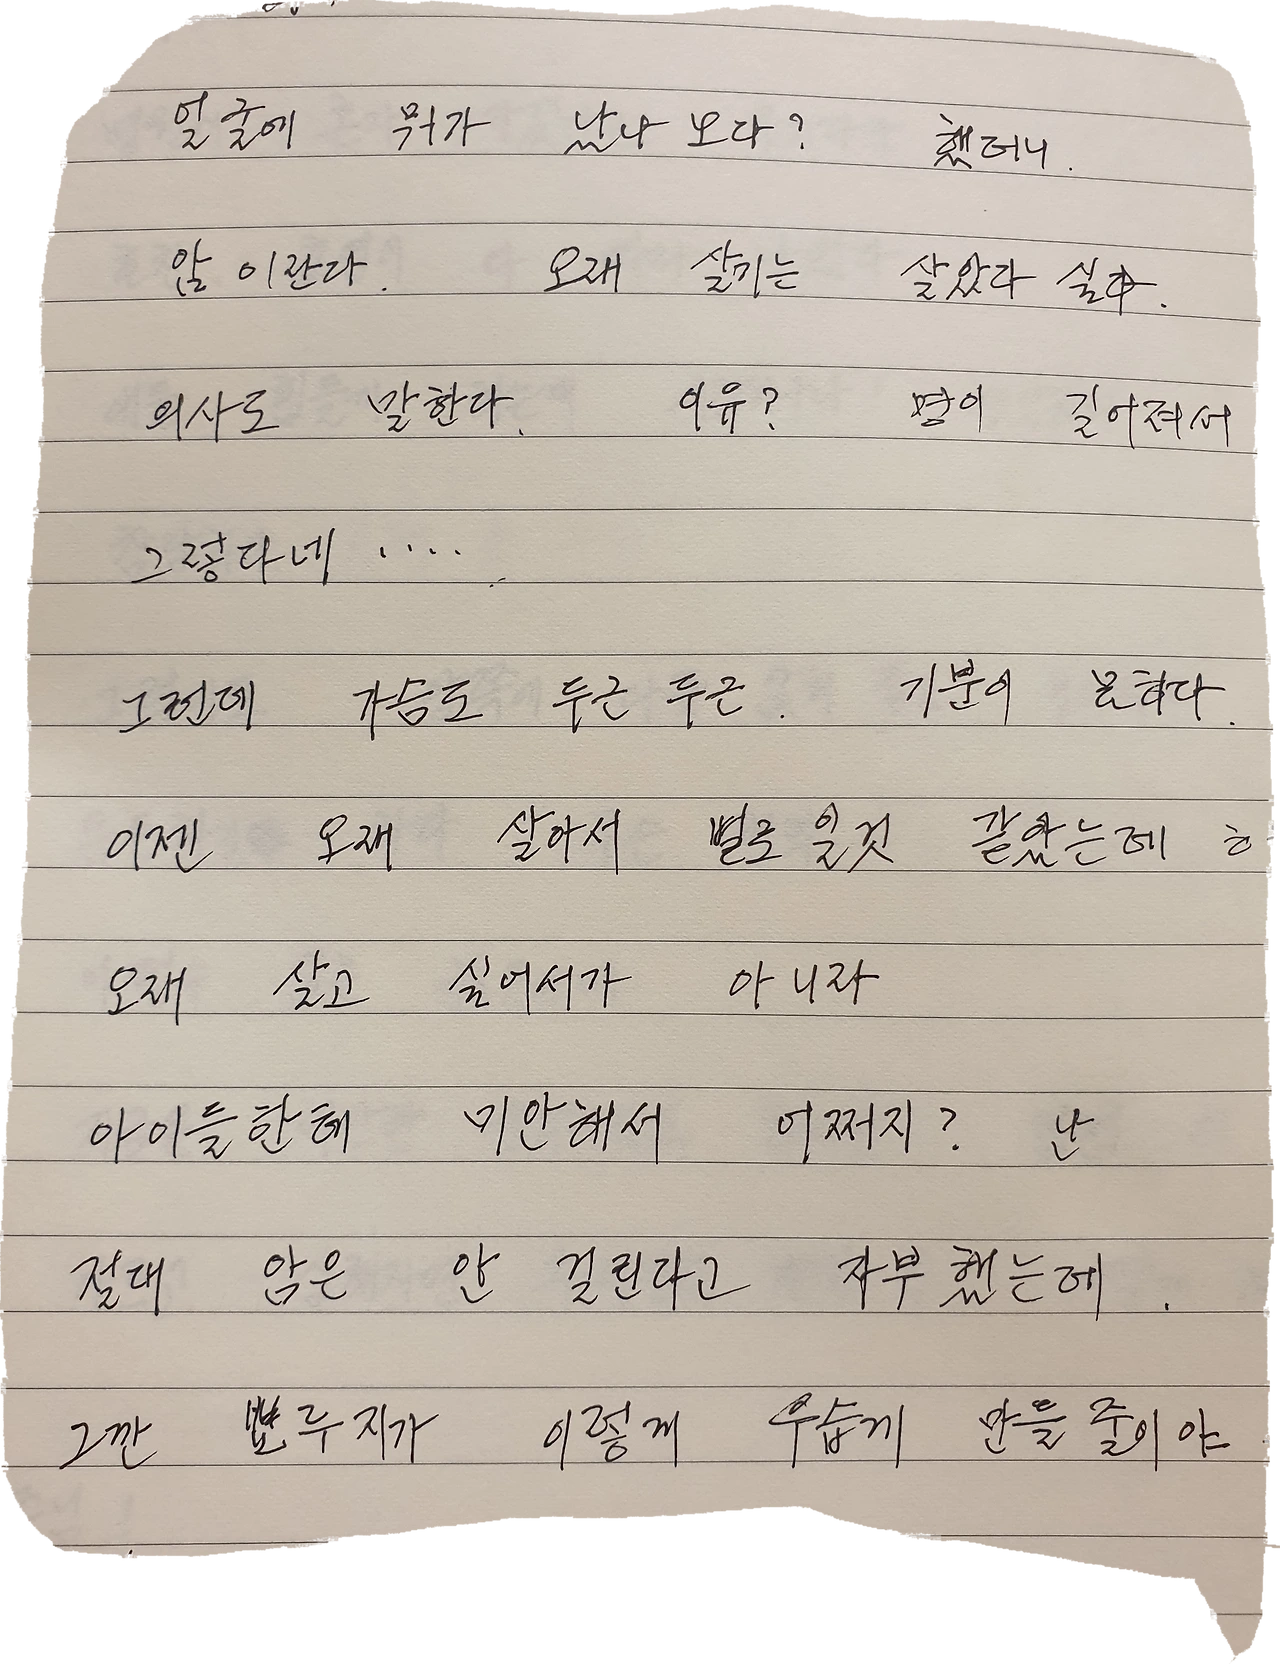 얼굴에 뭐가 났나 보다? 했더니.
암 이란다. 오래 살기는 살았다 싶다.
의사도 말한다. 이유? 명이 길어져서
그렇다네 ....
그런데 가슴도 두근 두근. 기분이 묘하다.
이젠 오래 살아서 별로 일것 같았는데 ㅎ
오래 살고 싶어서가 아니라
아이들한테 미안해서 어쩌지? 난
절대 암은 안 걸린다고 자부했는데.
그깐 뽀루지가 이렇게 우습게 만들 줄이야